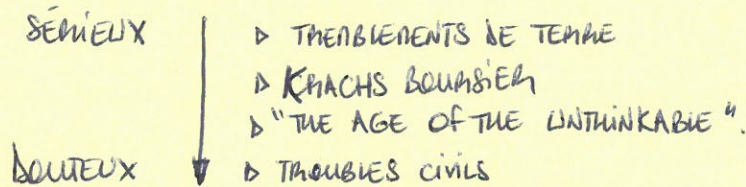 SÉRIEUX ▷ TREMBLEMENTS DE TERRE
▷ KRACHS BOURSIER
▷ "THE AGE OF THE UNTHINKABLE".
DOUTEUX ▷ TROUBLES CIVILS